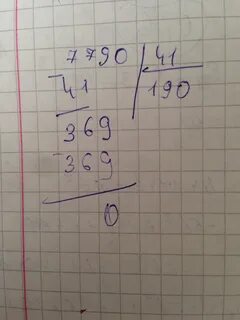 7790 | 41
- 41 | 190
369
- 369
0